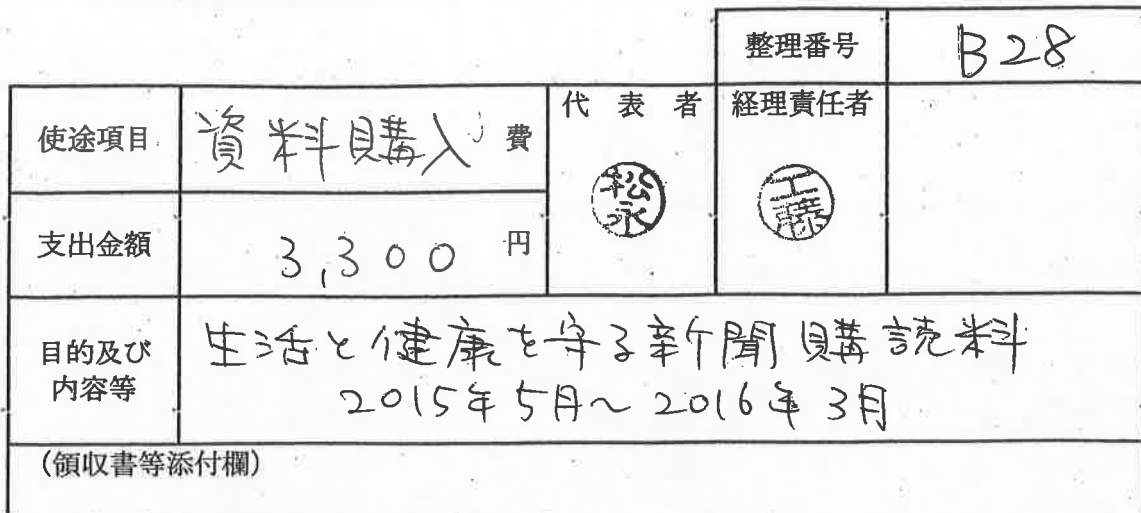 整理番号 B28
使途項目 資料購入費 代表者 経理責任者
松永 工藤
支出金額 3,300 円
目的及び内容等 生活と健康を守る新聞購読料
2015年5月～2016年3月
(領収書等添付欄)